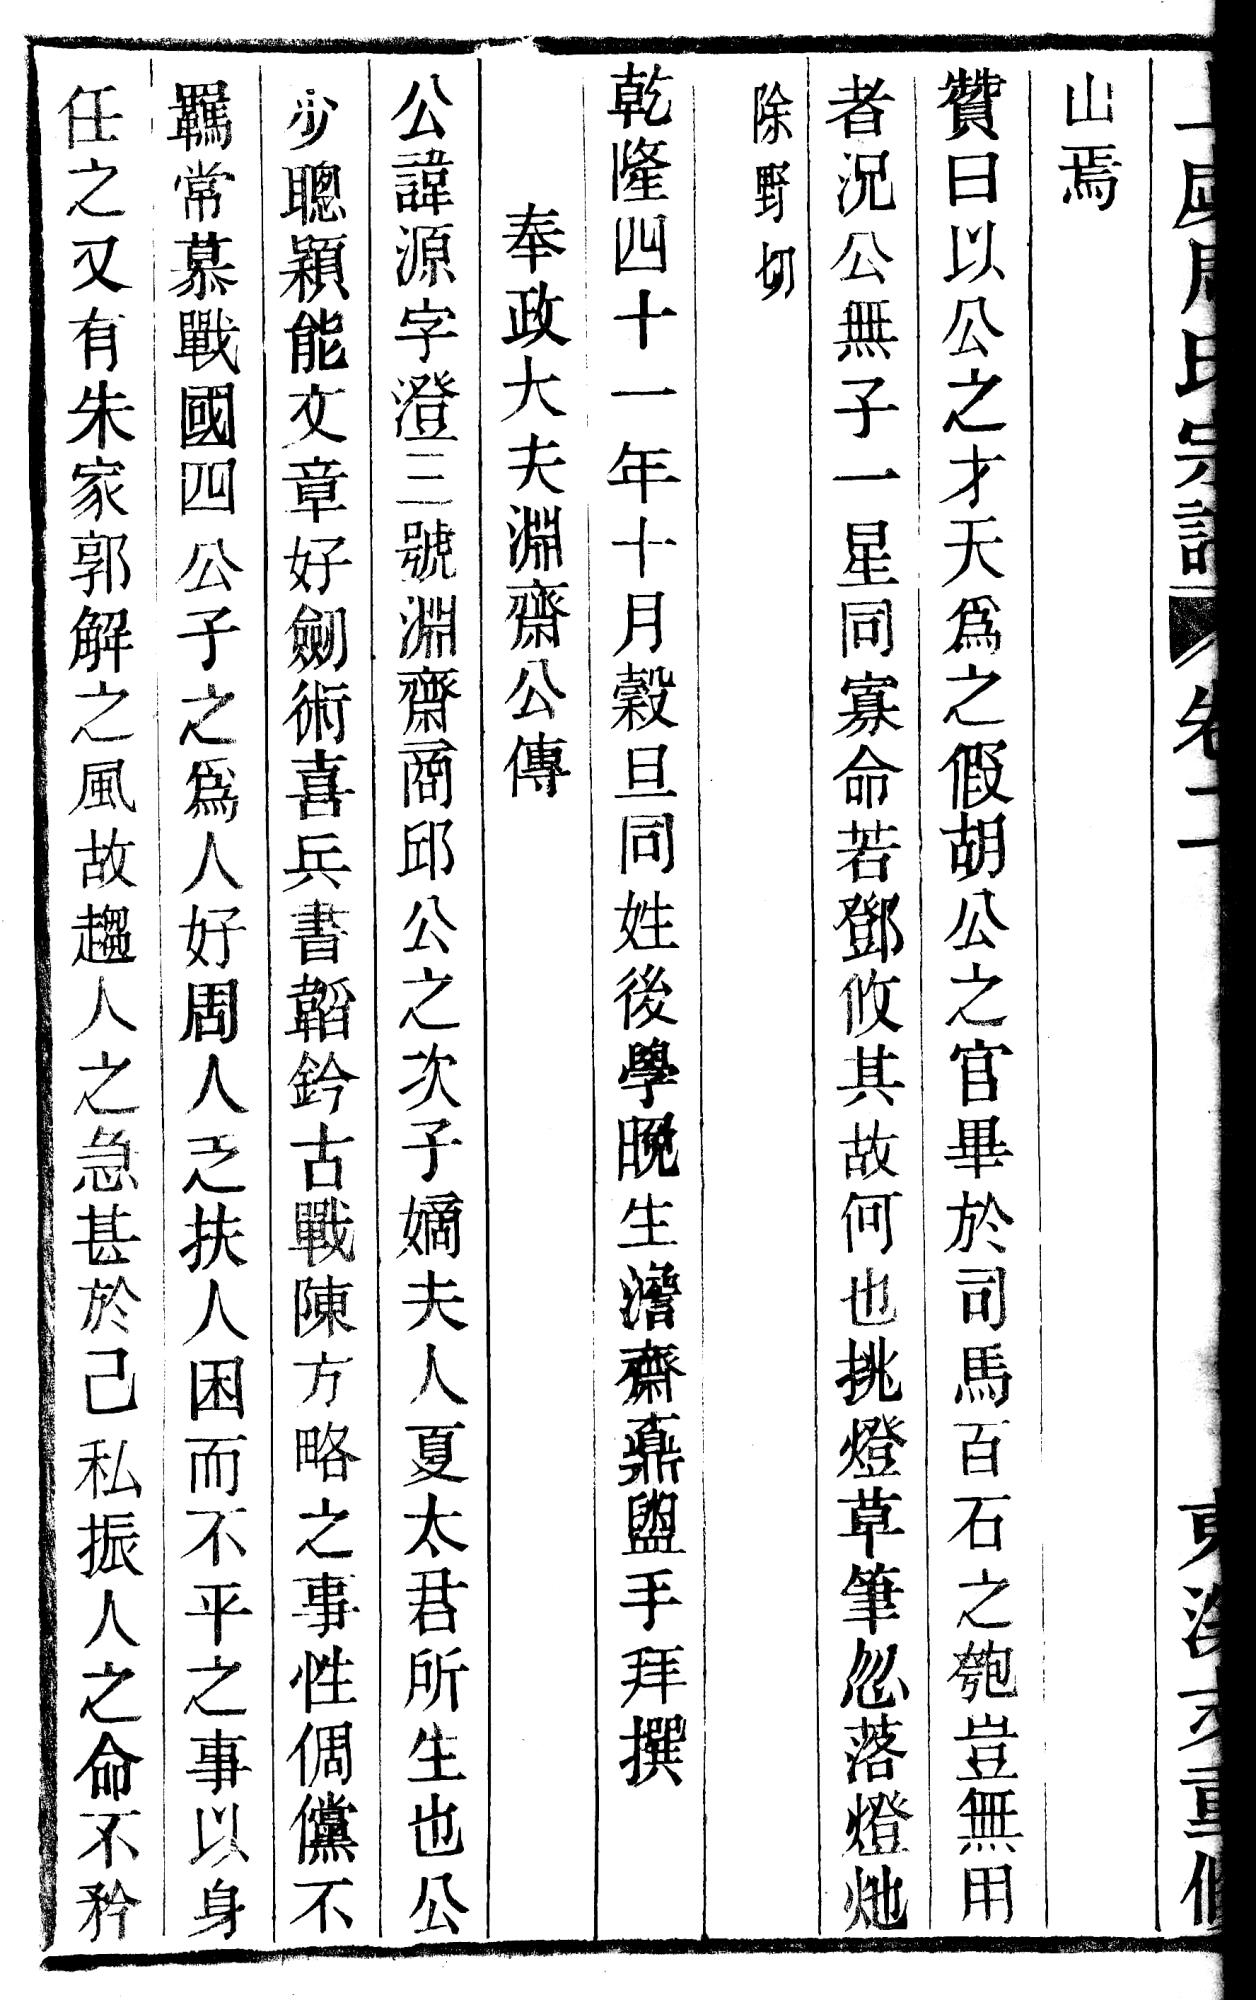 周氏宗譜 卷二 重修
山焉
贊曰以公之才天爲之假胡公之官畢於司馬百石之匏豈無用
者況公無子一星同寡命若鄧攸其故何也挑燈草筆忽落燈灺
除野切
乾隆四十一年十月穀旦同姓後學晚生澹齋鼎盥手拜撰
奉政大夫淵齋公傳
公諱源字澄三號淵齋商邱公之次子嫡夫人夏太君所生也公
少聰穎能文章好劒術喜兵書韜鈐古戰陳方略之事性倜儻不
羈常慕戰國四公子之爲人好周人之乏扶人困而不平之事以身
任之又有朱家郭解之風故趨人之急甚於己私振人之命不矜